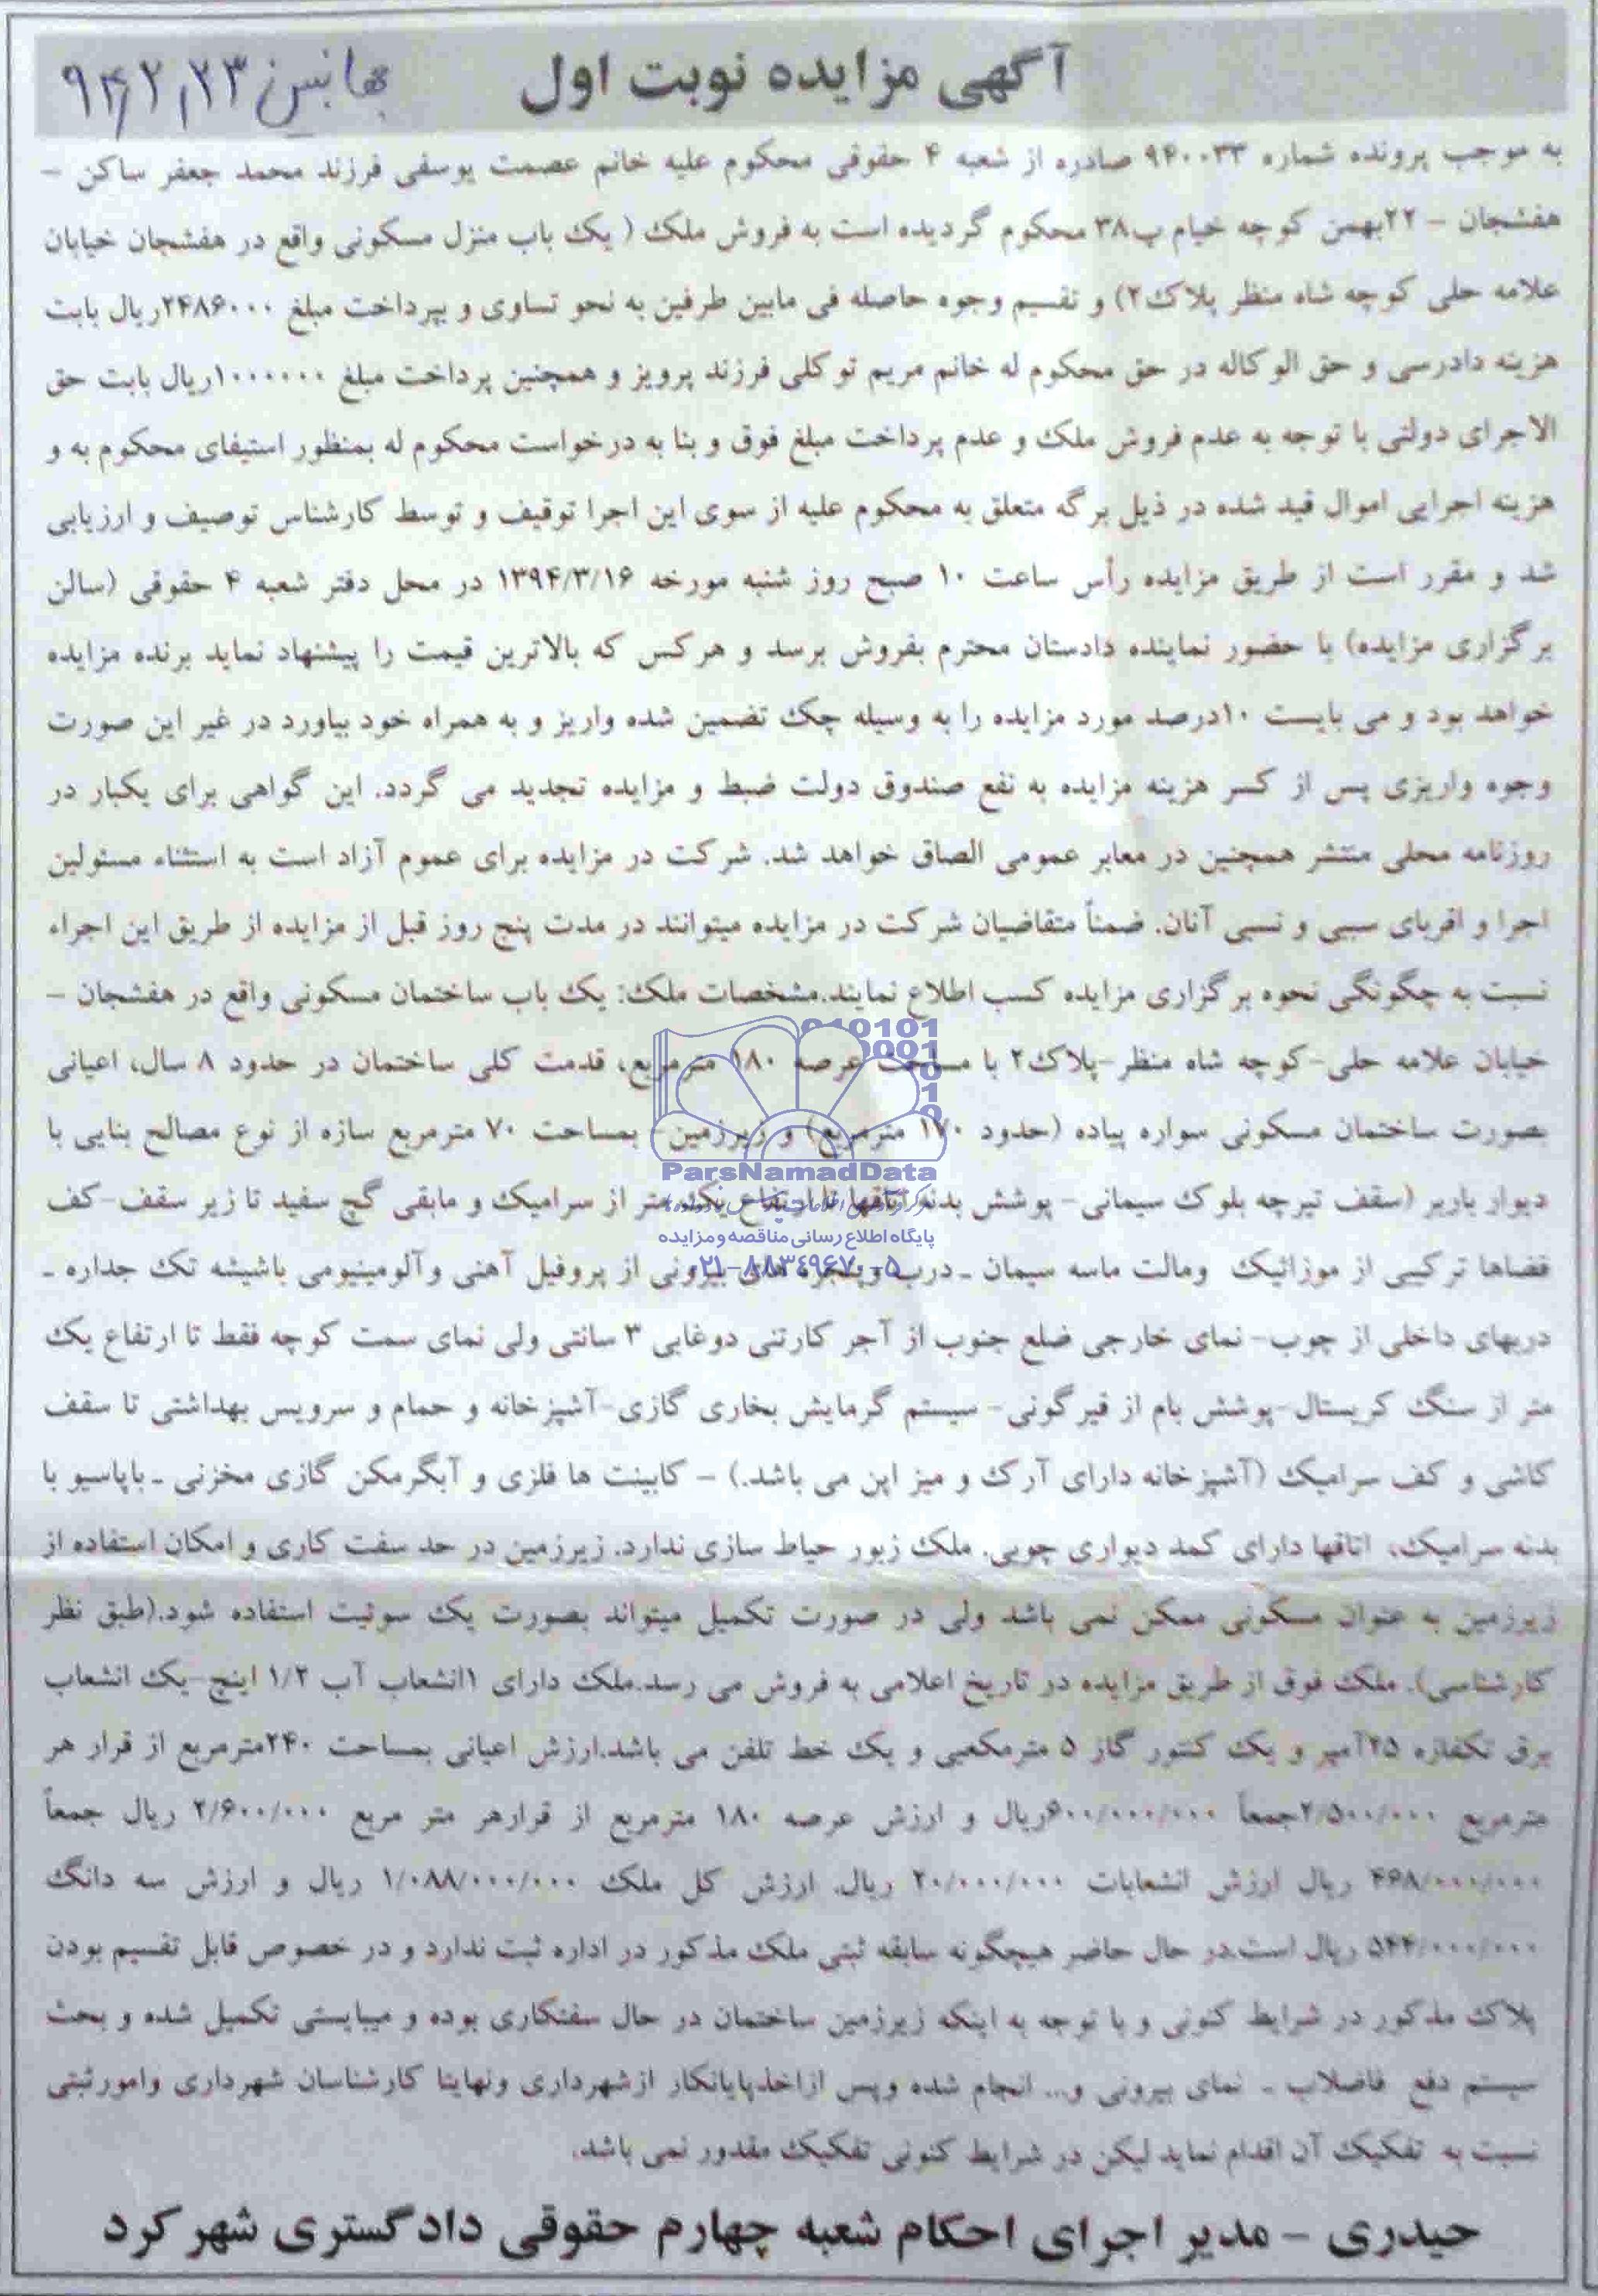 آگهی مزایده نوبت اول
۹۴٫۲٫۲۳
به موجب پرونده شماره ۹۴۰۰۳۳ صادره از شعبه ۴ حقوقی محکوم علیه خانم عصمت یوسفی فرزند محمد جعفر ساکن –
هفشجان – ۲۲بهمن کوچه خیام پ۳۸ محکوم گردیده است به فروش ملک ( یک باب منزل مسکونی واقع در هفشجان خیابان
علامه حلی کوچه شاه منظر پلاک۲) و تقسیم وجوه حاصله فی مابین طرفین به نحو تساوی و بپرداخت مبلغ ۲۴۸۶۰۰۰ریال بابت
هزینه دادرسی و حق الوکاله در حق محکوم له خانم مریم توکلی فرزند پرویز و همچنین پرداخت مبلغ ۱۰۰۰۰۰۰ریال بابت حق
الاجرای دولتی با توجه به عدم فروش ملک و عدم پرداخت مبلغ فوق و بنا به درخواست محکوم له بمنظور استیفای محکوم به و
هزینه اجرایی اموال قید شده در ذیل برگه متعلق به محکوم علیه از سوی این اجرا توقیف و توسط کارشناس توصیف و ارزیابی
شد و مقرر است از طریق مزایده رأس ساعت ۱۰ صبح روز شنبه مورخه ۱۳۹۴/۳/۱۶ در محل دفتر شعبه ۴ حقوقی (سالن
برگزاری مزایده) با حضور نماینده دادستان محترم بفروش برسد و هرکس که بالاترین قیمت را پیشنهاد نماید برنده مزایده
خواهد بود و می بایست ۱۰درصد مورد مزایده را به وسیله چک تضمین شده واریز و به همراه خود بیاورد در غیر این صورت
وجوه واریزی پس از کسر هزینه مزایده به نفع صندوق دولت ضبط و مزایده تجدید می گردد. این گواهی برای یکبار در
روزنامه محلی منتشر همچنین در معابر عمومی الصاق خواهد شد. شرکت در مزایده برای عموم آزاد است به استثناء مسئولین
اجرا و اقربای سببی و نسبی آنان. ضمناً متقاضیان شرکت در مزایده میتوانند در مدت پنج روز قبل از مزایده از طریق این اجراء
نسبت به چگونگی نحوه برگزاری مزایده کسب اطلاع نمایند.مشخصات ملک: یک باب ساختمان مسکونی واقع در هفشجان –
خیابان علامه حلی-کوچه شاه منظر-پلاک۲ با مساحت عرصه ۱۸۰ مترمربع، قدمت کلی ساختمان در حدود ۸ سال، اعیانی
بصورت ساختمان مسکونی سواره پیاده (حدود ۱۷۰ مترمربع) و زیرزمین- بمساحت ۷۰ مترمربع سازه از نوع مصالح بنایی با
دیوار باربر (سقف تیرچه بلوک سیمانی- پوشش بدنه اتاقها تا ارتفاع یک متر از سرامیک و مابقی گچ سفید تا زیر سقف-کف
فضاها ترکیبی از موزائیک ومالت ماسه سیمان ـ درب وپنجره های بیرونی از پروفیل آهنی وآلومینیومی باشیشه تک جداره ـ
دربهای داخلی از چوب- نمای خارجی ضلع جنوب از آجر کارتنی دوغابی ۳ سانتی ولی نمای سمت کوچه فقط تا ارتفاع یک
متر از سنگ کریستال-پوشش بام از قیرگونی- سیستم گرمایش بخاری گازی-آشپزخانه و حمام و سرویس بهداشتی تا سقف
کاشی و کف سرامیک (آشپزخانه دارای آرک و میز اپن می باشد.) – کابینت ها فلزی و آبگرمکن گازی مخزنی ـ باپاسیو با
بدنه سرامیک، اتاقها دارای کمد دیواری چوبی. ملک زبور حیاط سازی ندارد. زیرزمین در حد سفت کاری و امکان استفاده از
زیرزمین به عنوان مسکونی ممکن نمی باشد ولی در صورت تکمیل میتواند بصورت یک سوئیت استفاده شود.(طبق نظر
کارشناسی). ملک فوق از طریق مزایده در تاریخ اعلامی به فروش می رسد.ملک دارای ۱انشعاب آب ۱/۲ اینچ-یک انشعاب
برق تکفازه ۲۵آمپر و یک کنتور گاز ۵ مترمکعبی و یک خط تلفن می باشد.ارزش اعیانی بمساحت ۲۴۰مترمربع از قرار هر
مترمربع ۲/۵۰۰/۰۰۰جمعاً ۶۰۰/۰۰۰/۰۰۰ریال و ارزش عرصه ۱۸۰ مترمربع از قرارهر متر مربع ۲/۶۰۰/۰۰۰ ریال جمعاً
۴۶۸/۰۰۰/۰۰۰ ریال ارزش انشعابات ۲۰/۰۰۰/۰۰۰ ریال. ارزش کل ملک ۱/۰۸۸/۰۰۰/۰۰۰ ریال و ارزش سه دانگ
۵۴۴/۰۰۰/۰۰۰ ریال است.در حال حاضر هیچگونه سابقه ثبتی ملک مذکور در اداره ثبت ندارد و در خصوص قابل تقسیم بودن
پلاک مذکور در شرایط کنونی و با توجه به اینکه زیرزمین ساختمان در حال سفتکاری بوده و میبایستی تکمیل شده و بحث
سیستم دفع فاضلاب ـ نمای بیرونی و... انجام شده وپس ازاخذپایانکار ازشهرداری ونهایتا کارشناسان شهرداری وامورثبتی
نسبت به تفکیک آن اقدام نماید لیکن در شرایط کنونی تفکیک مقدور نمی باشد.
حیدری – مدیر اجرای احکام شعبه چهارم حقوقی دادگستری شهرکرد
ParsNamadData
پایگاه اطلاع رسانی مناقصه و مزایده
۰۲۱-۸۸۳۴۹۶۷۰-۵